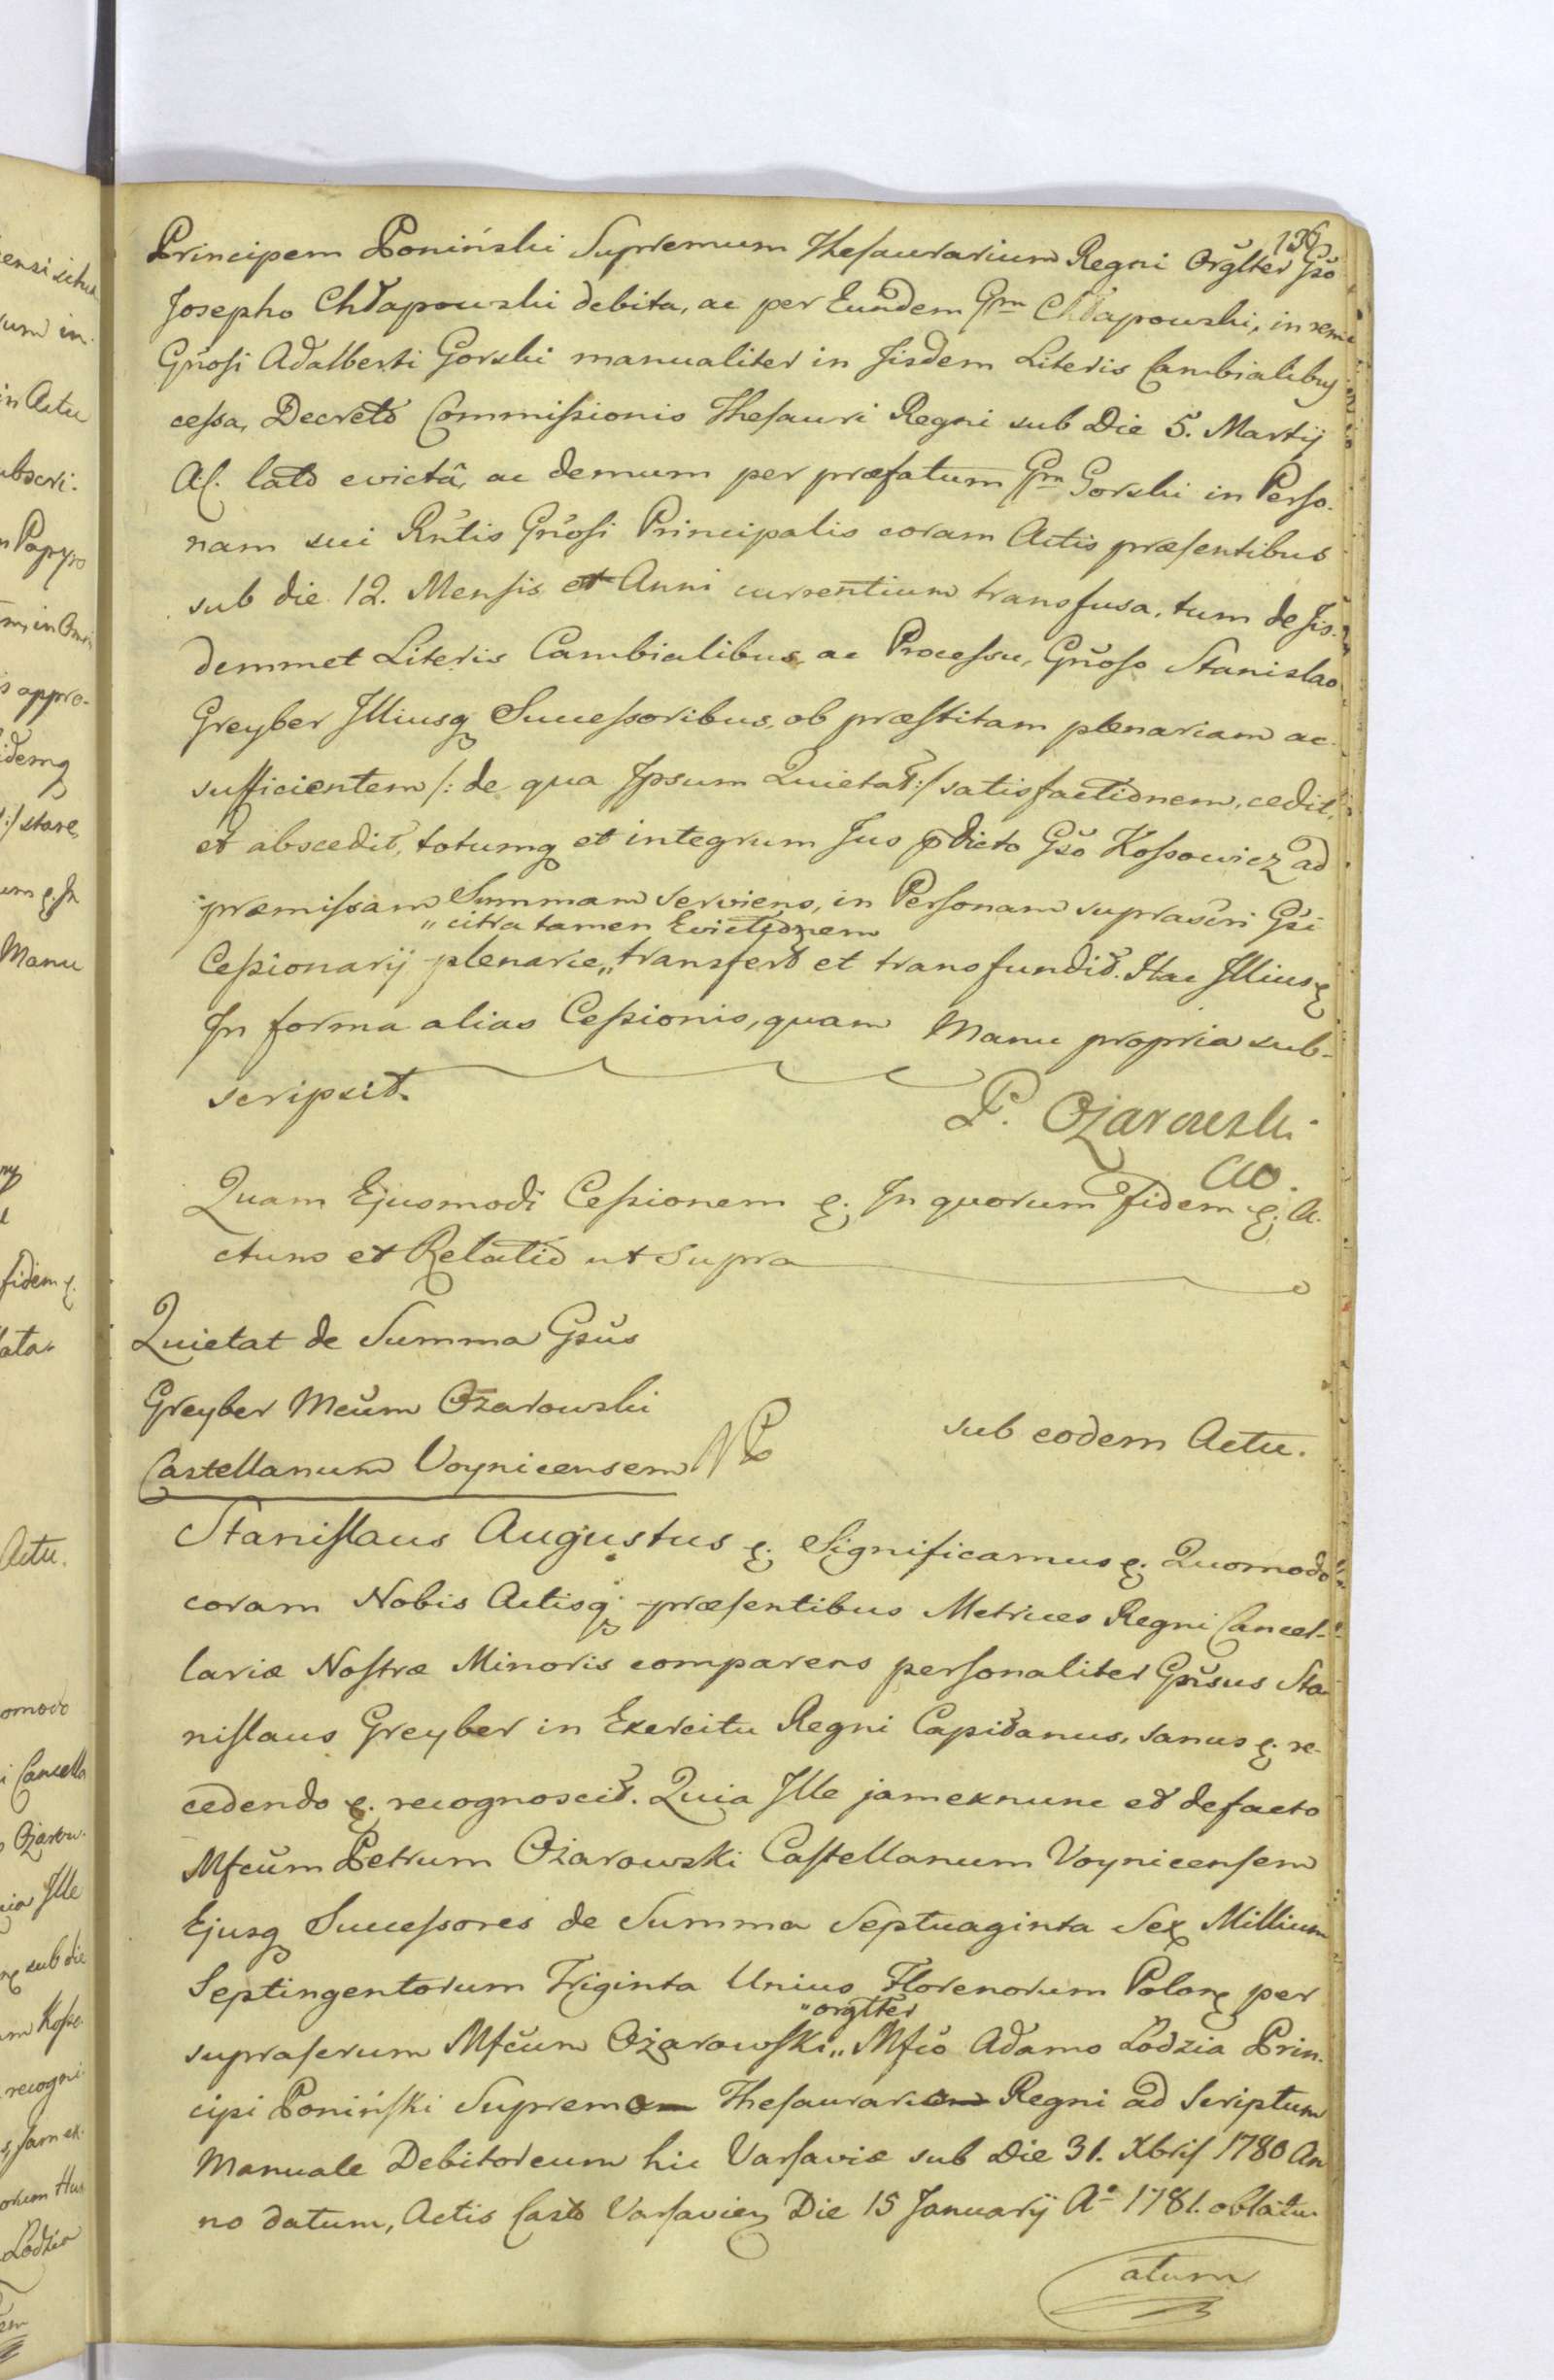 136
Principem Poniński Supremum Thesaurarium Regni Orglter Gso
Josepho Chłapowski debita, ac per Eundem Gm Chłapowski, in rem
Gnosi Adalberti Gorski manualiter in Jisdem Literis Cambialibus
cessa, Decreto Commissionis Thesauri Regni sub Die 5. Martij
A.C. lato evicta, ac demum per præfatum Gm Gorski in Perso-
nam sui Rntis Gnosi Principalis coram Actis præsentibus
sub die 12. Mensis et Anni currentium transfusa, tum de Jis-
demmet Literis Cambialibus ac Processu, Gnoso Stanislao
Greyber Illiusq Successoribus, ob præstitam plenariam ac
sufficientem /: de qua Ipsum Quietat :/ satisfactionem, cedit,
et abscedit, totumq et integrum Jus pdicto Gso Kossowicz ad
præmissam Summam serviens, in Personam suprascri Gsi
„citra tamen Evictionem
Cessionarij plenarie„ transfert et transfundit. Hac Illius &
In forma alias Cessionis, quam Manu propria sub-
scripsit.
P. Ożarowski
CW.
Quam Ejusmodi Cessionem &. In quorum fidem &. A-
ctum et Relatio ut Supra
Quietat de Summa Gsus
Greyber Mcum Ożarowski
Castellanum Voynicensem
sub eodem Actu.
Stanislaus Augustus &. Significamus &. Quomodo
coram Nobis Actisq præsentibus Metrices Regni Cancel-
lariæ Nostræ Minoris comparens personaliter Gnsus Sta-
nislaus Greyber in Exercitu Regni Capitanus, sanus &. re-
cedendo &. recognoscit. Quia Ille jam exnunc et defacto
Mfcum Petrum Ożarowski Castellanum Voynicensem
Ejusq Successores de Summa Septuaginta Sex Millium
Septingentorum Triginta Unius Florenorum Polon per
„orgltter
suprascrum Mfcum Ożarowski„ Mfco Adamo Łodzia Prin-
cipi Poniński Supremo Thesaurario Regni ad Scriptum
Manuale Debitoreum hic Varsaviæ sub Die 31. Xbris 1780 An-
no datum, Actis Casts Varsavien Die 15 Januarij Ao 1781. oblatu
atum